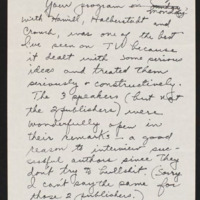 Your program on Monday
with Hamill, Halberstadt and
Crouch, was one of the best
I've seen on TV because
it dealt with some serious
ideas and treated them
seriously & constructively.
The 3 speakers (but not
the 2 publishers) were
wonderfully open in
their remarks — a good
reason to interview suc-
cessful authors since they
don't try to bullshit. (Sorry
I can't say the same for
those 2 publishers.)